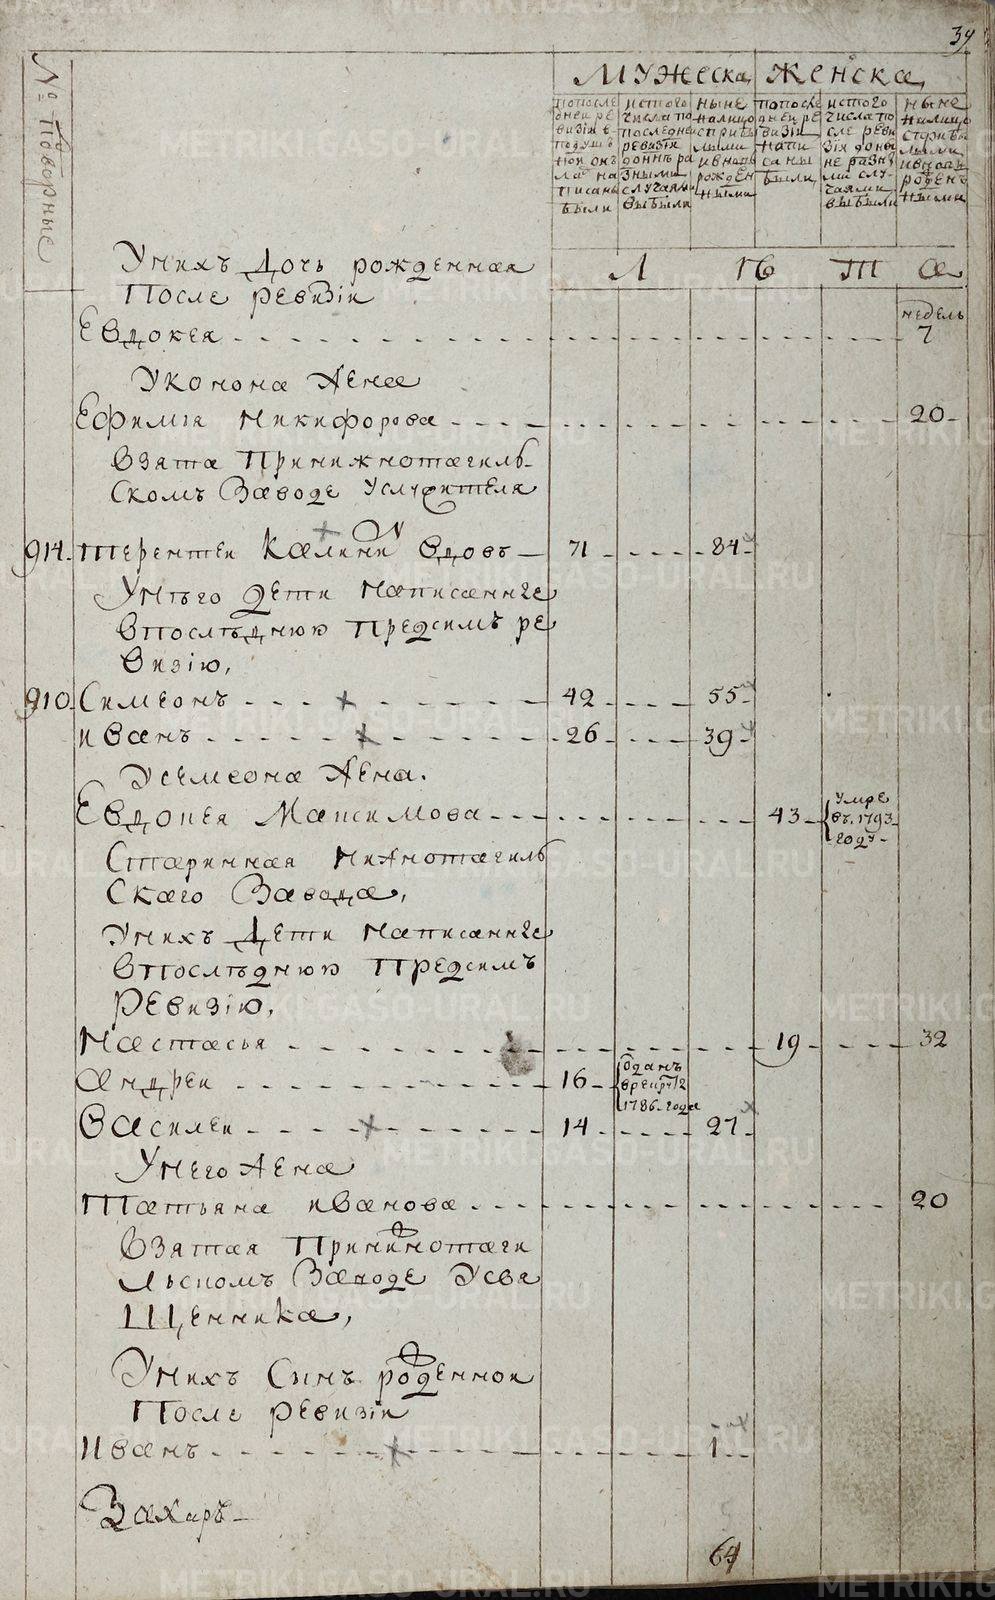 39
№ Подворные
Мужеска
Женска
попосле
дней ре
визiи в
подуш
ной ок
ла на
писаны
были
ис того
числа по
последне
ревизiи
до нн ра
зными
случаями
выбыли
ныне
налицо
с прибы
лыми
и вновь
рожден
ными
попосле
дней ре
визiи
напи
саны
были
ис того
числа по
сле реви
зiи до ны
не разны
ми слу
чаями
выбыли
ныне
налицо
с прибы
лыми
и вновь
рожден
ными
Л ѣ т а
Уних Дочь рожденная
После ревизiи
недель
Евдокея 7
Уконона Жена
Ефимiя Никифорова 20
Взята Принижнотагиль
скомъ Заводе Услужителя
914. Терентеи Калинин Вдовъ 71 84
Унѣго дети написанные
Впослѣднюю Предсимъ ре
визiю,
910. Симеонъ 42 55
иванъ 26 39
Усемеона Жена.
Евдокея Максимова 43 умре въ 1793 году
Старинная Нижнотагиль
скаго Завода,
Унихъ Дети написанные
Впослѣднюю Предсимъ
Ревизiю,
Настасья 19 32
андреи 16 Одан в рекруты 1786 года
Василеи 14 27
Унего Жена
Татьяна иванова 20
Взятая Принижнотаги
льскомъ Заводе Усвя
щенника,
Унихъ Сынъ рожденнои
После ревизiи
Иванъ 1
Захаръ
64
METRIKI.GASO-URAL.RU